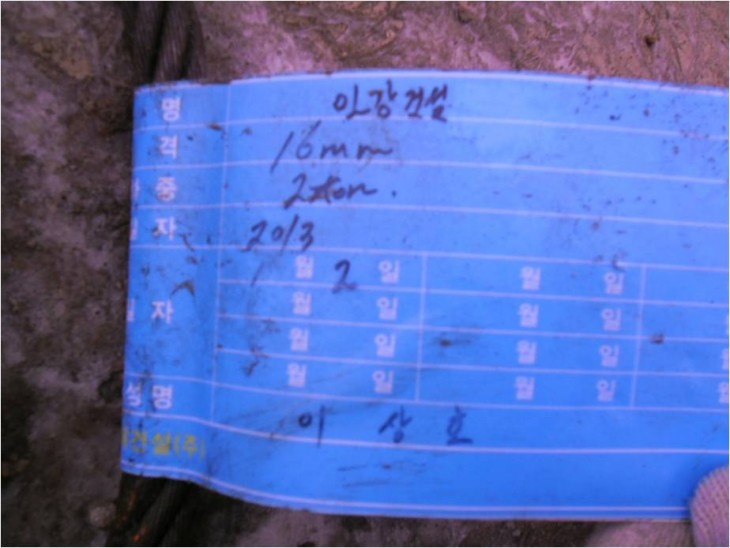 명 인강건설
격 16mm
중 2ton.
자 2013
1 월 2 일 월 일
월 일 월 일
자 월 일 월 일
월 일 월 일
성명 이 상 호
건설(주)